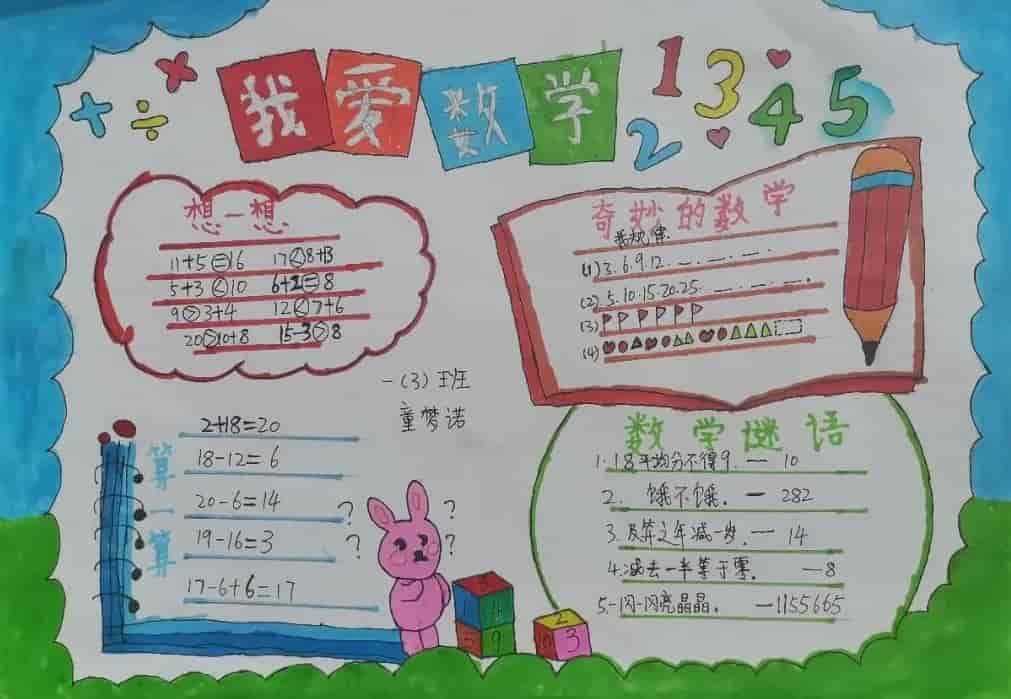 我爱数学
1 2 3 4 5
+ ÷ ×
想一想
11+5=16 17<8+13
5+3<10 6+2=8
9>3+4 12<7+6
20>10+8 15-3>8
奇妙的数学
(1)3.6.9.12.
(2)5.10.15.20.25.
(3)
(4)
一(3)班
童梦诺
算一算
2+18=20
18-12=6
20-6=14
19-16=3
17-6+6=17
? ?
? ?
9
2
3
数学谜语
1.18平均分不得9.— 10
2. 饿不饿.— 282
3.及笄之年减一岁.— 14
4.减去一半等于零. —8
5.一闪一闪亮晶晶. —1155665